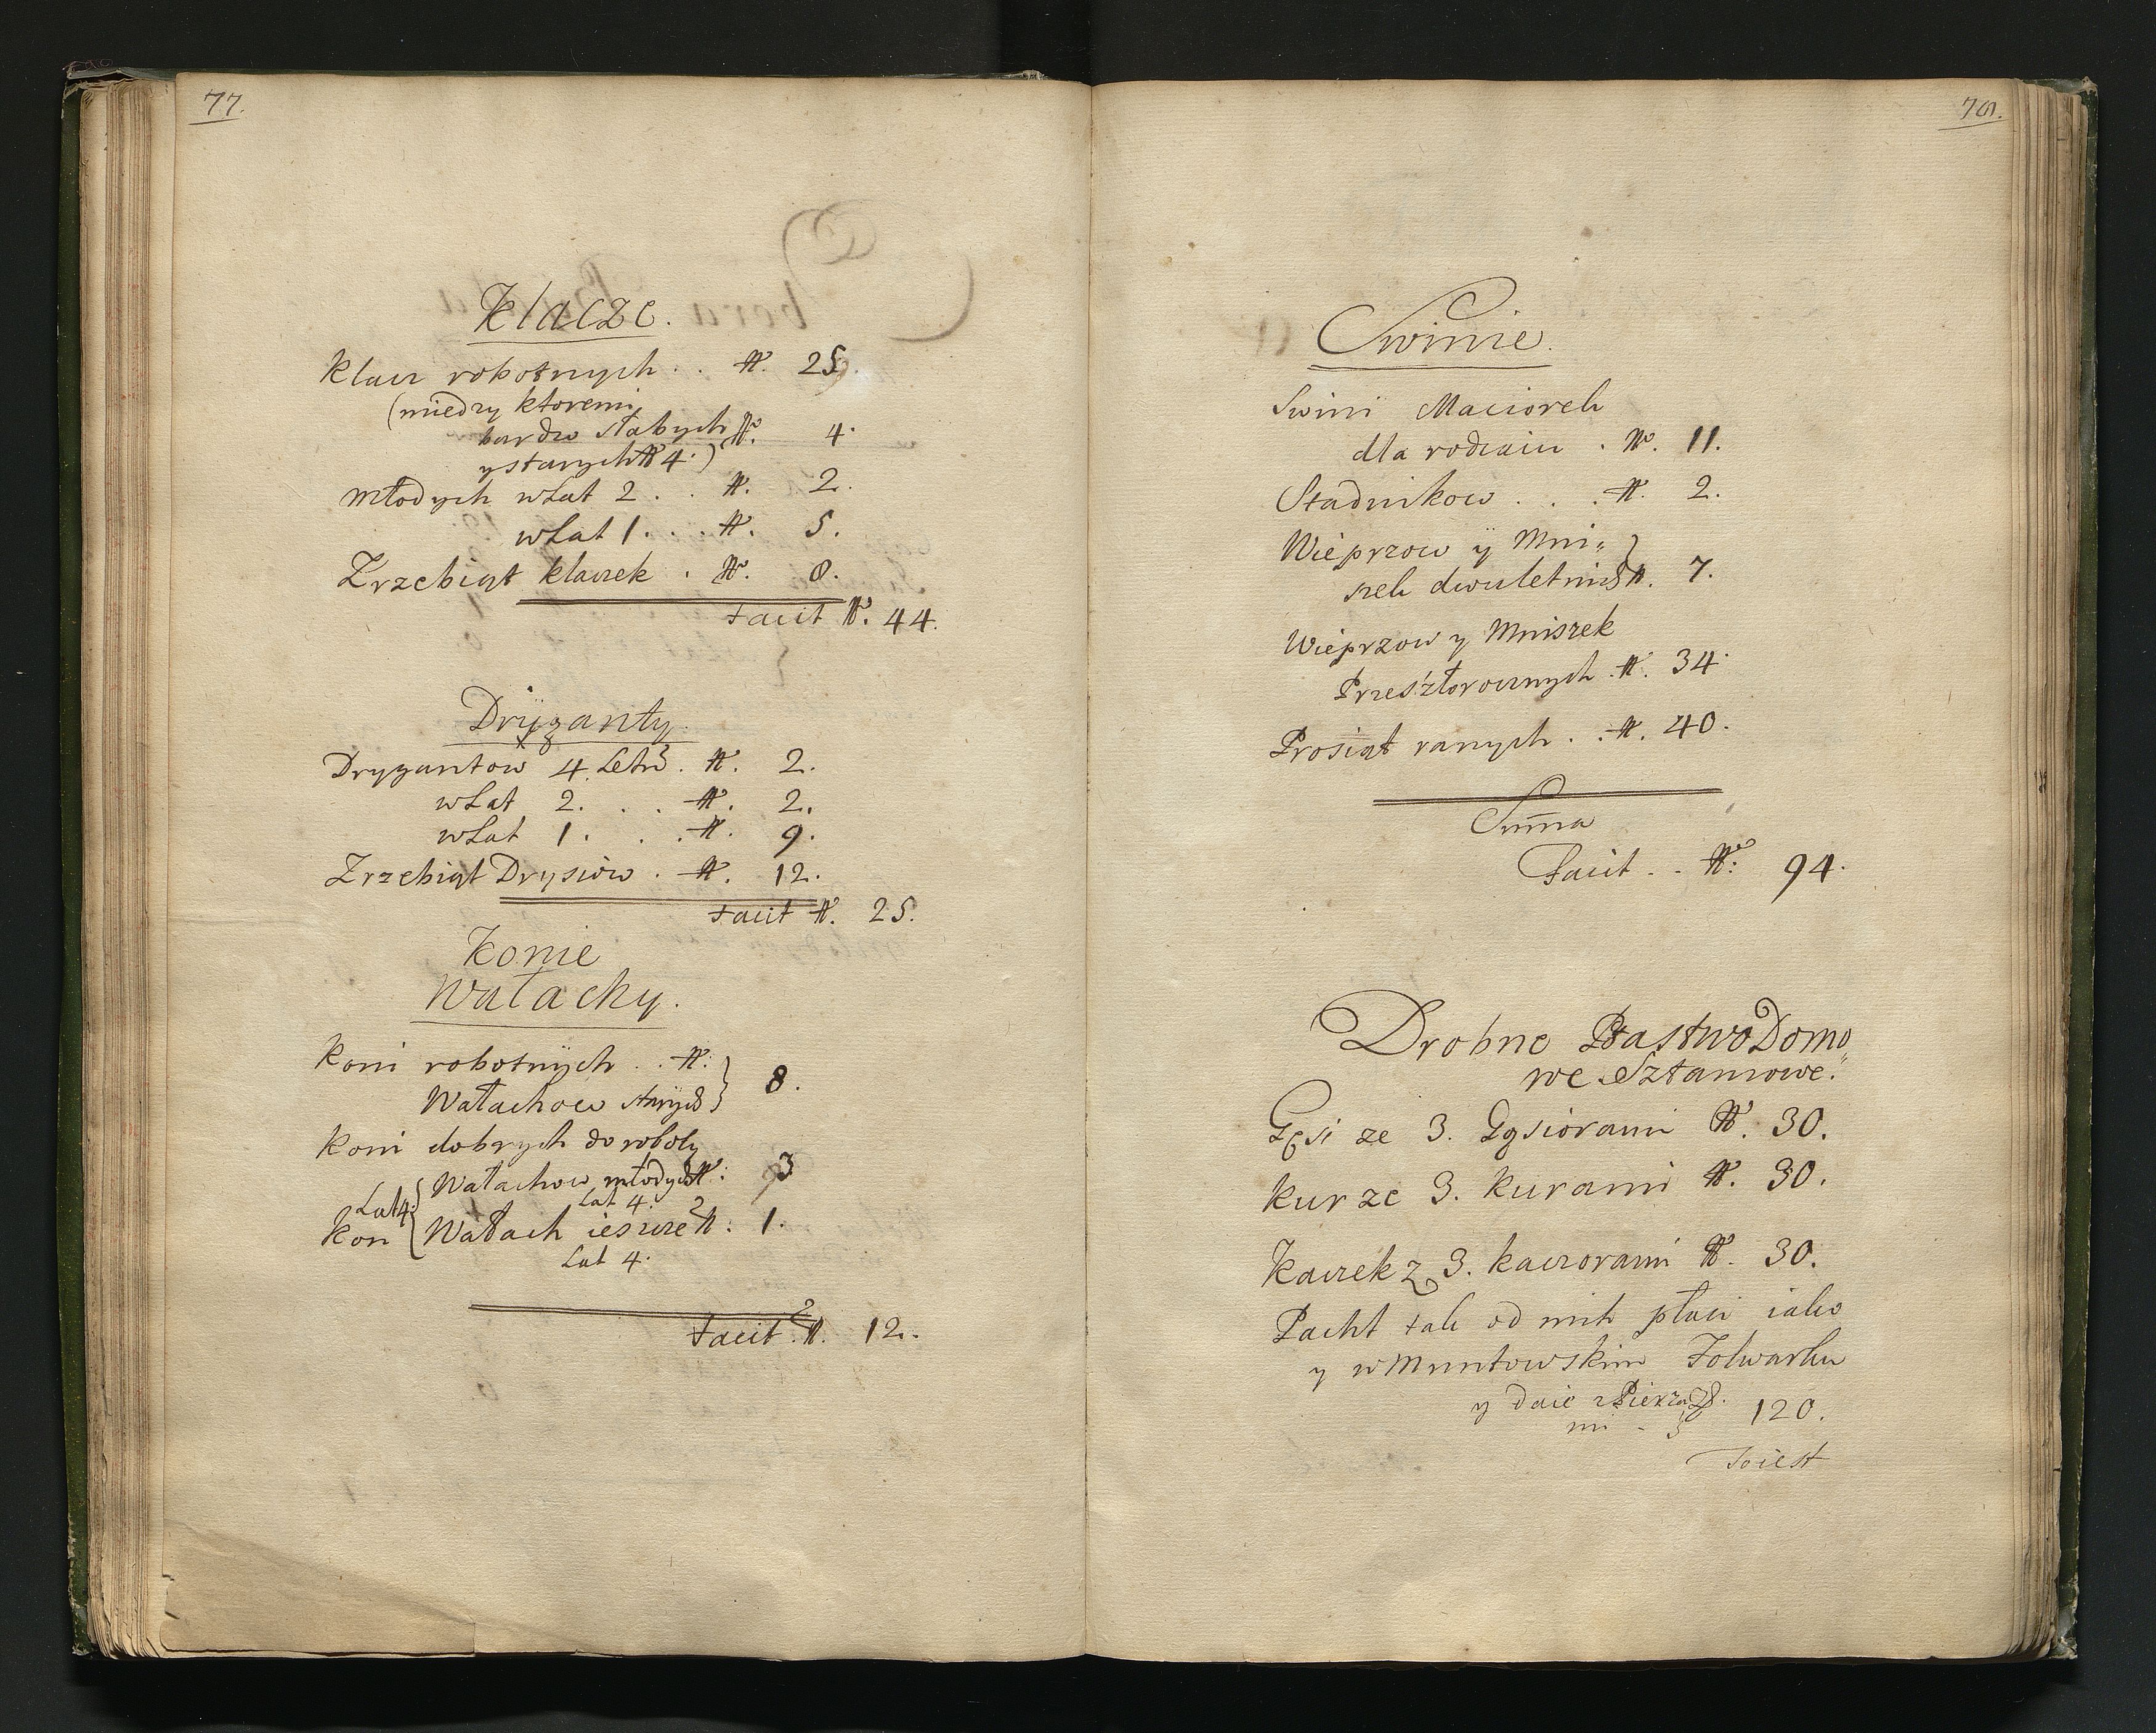 77.
Klacze.
Klacz robotnych . . N. 25.
(miedzy ktoremi
bardzo słabych N. 4.
y starych N 4.)
Młodych w Lat 2 . . N. 2.
w Lat 1 . . . N. 5.
Zrzebiąt klaczek . N. 8.
Facit N. 44.
Dryganty
Drygantow 4. Letń . N. 2.
w Lat 2. . . N. 2.
w Lat 1. . . N. 9.
Zrzebiąt Drysiów . N. 12.
Facit N. 25.
Konie
Wałachy.
Koni robotnÿch . . N.
Wałachow starych } 8.
Koni dobrych do roboty
Wałachow młodych N. 3
Lat 4.
Lat 4.
Kon { Wałach ieszcze N. 1.
Lat 4.
Facit . N. 12.
78.
Swinie.
Swini Maciorek
dla rodzaiu . N. 11.
Stadnikow . . . N. 2.
Wieprzow ÿ Mni„
szek dwuletnich } N. 7.
Wieprzow y Mniszek
Przeszłorocznych . N. 34.
Prosiąt ranych . . N. 40.
Sum̄a
Facit . . N. 94.
Drobne Ptastwo Domo„
we Sztamowe.
Gęsi ze 3. Gąsiorami N. 30.
Kur ze 3. Kurami N. 30.
Kaczek z 3. kaczorami N. 30.
Pacht tak od nich płaci iako
y w Muntowskim Folwarku
y daie z Pierza
mi - 120.
Toiest